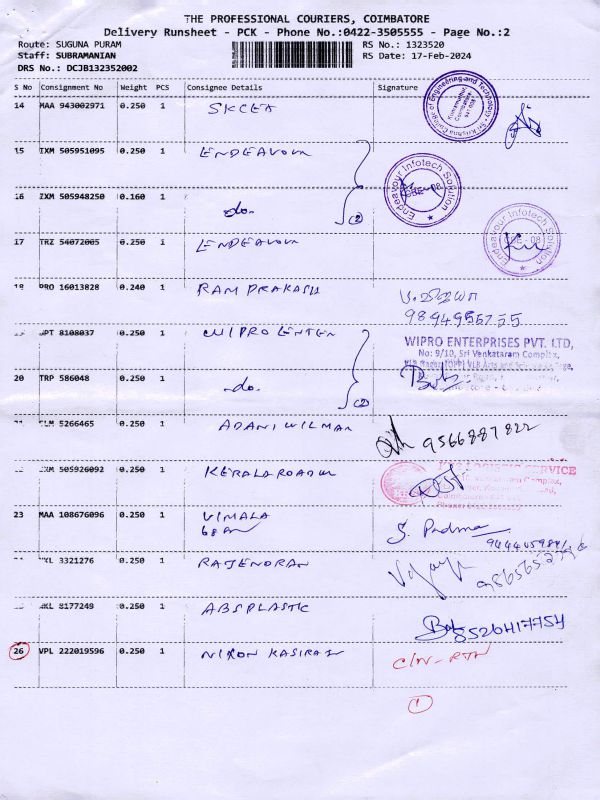 THE PROFESSIONAL COURIERS, COIMBATORE
Delivery Runsheet - PCK - Phone No.:0422-3505555 - Page No.:2
Route: SUGUNA PURAM RS No.: 1323520
Staff: SUBRAMANIAN RS Date: 17-Feb-2024
DRS No.: DCJB132352002
S No Consignment No Weight PCS Consignee Details Signature
14 MAA 943002971 0.250 1 SKCET
Sri Krishna College of Engineering and Technology
Kuniamuthur,
Coimbatore
641 008
15 IXM 505951095 0.250 1 ENDEAVOUR
Endeavour Infotech Solution
CBE - 08
16 IXM 505948250 0.160 1 -do- (2)
Endeavour Infotech Solution
CBE - 08
17 TRZ 54072005 0.250 1 ENDEAVOUR
18 PRO 16013828 0.240 1 RAM PRAKASH
9894955755
JPT 8108037 0.250 1 WIPRO ENTER
WIPRO ENTERPRISES PVT. LTD,
No: 9/10, Sri Venkataram Complex,
20 TRP 586048 0.250 1 -do- (2)
5266465 0.250 1 ADANI WILMAR 9566887822
505926092 0.250 1 KERALA ROADW
SERVICE
23 MAA 108676096 0.250 1 VIMALA S. Padma
3321276 0.250 1 RAJENDRAN
8177249 0.250 1 ABS PLASTIC
8526417754
26 VPL 222019596 0.250 1 NIXON KASIRAJ C/N-RTN
1